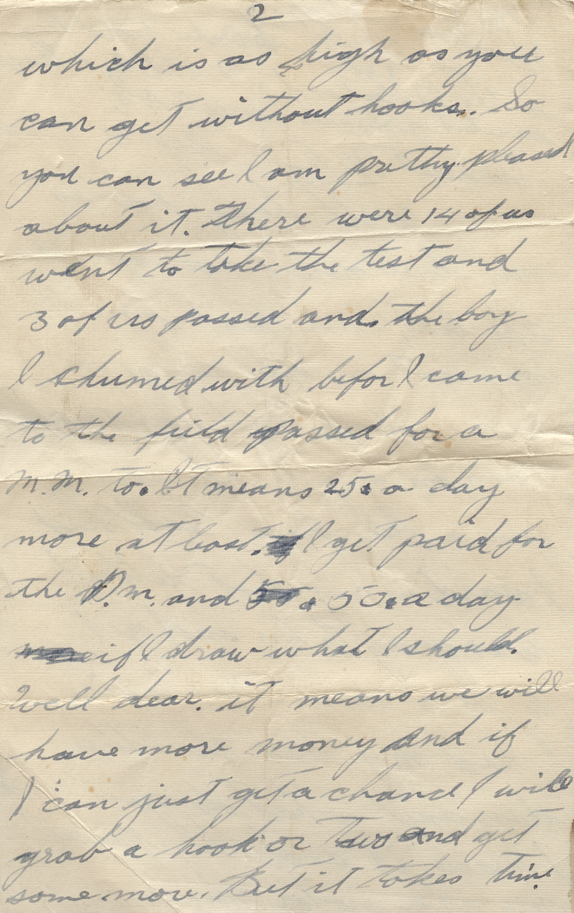 2
which is as high as you
can get without hooks. So
you can see I am pretty pleased
about it. There were 14 of us
went to take the test and
3 of us passed and. the boy
I chumed with befor I came
to the field passed for a
M.M. to. It means 25¢ a day
more at least. I get paid for
the P.M. and 50¢ a day
if I draw what I should.
Well dear. it means we will
have more money and if
I can just get a chance I will
grab a hook or two and get
some more. But it takes time